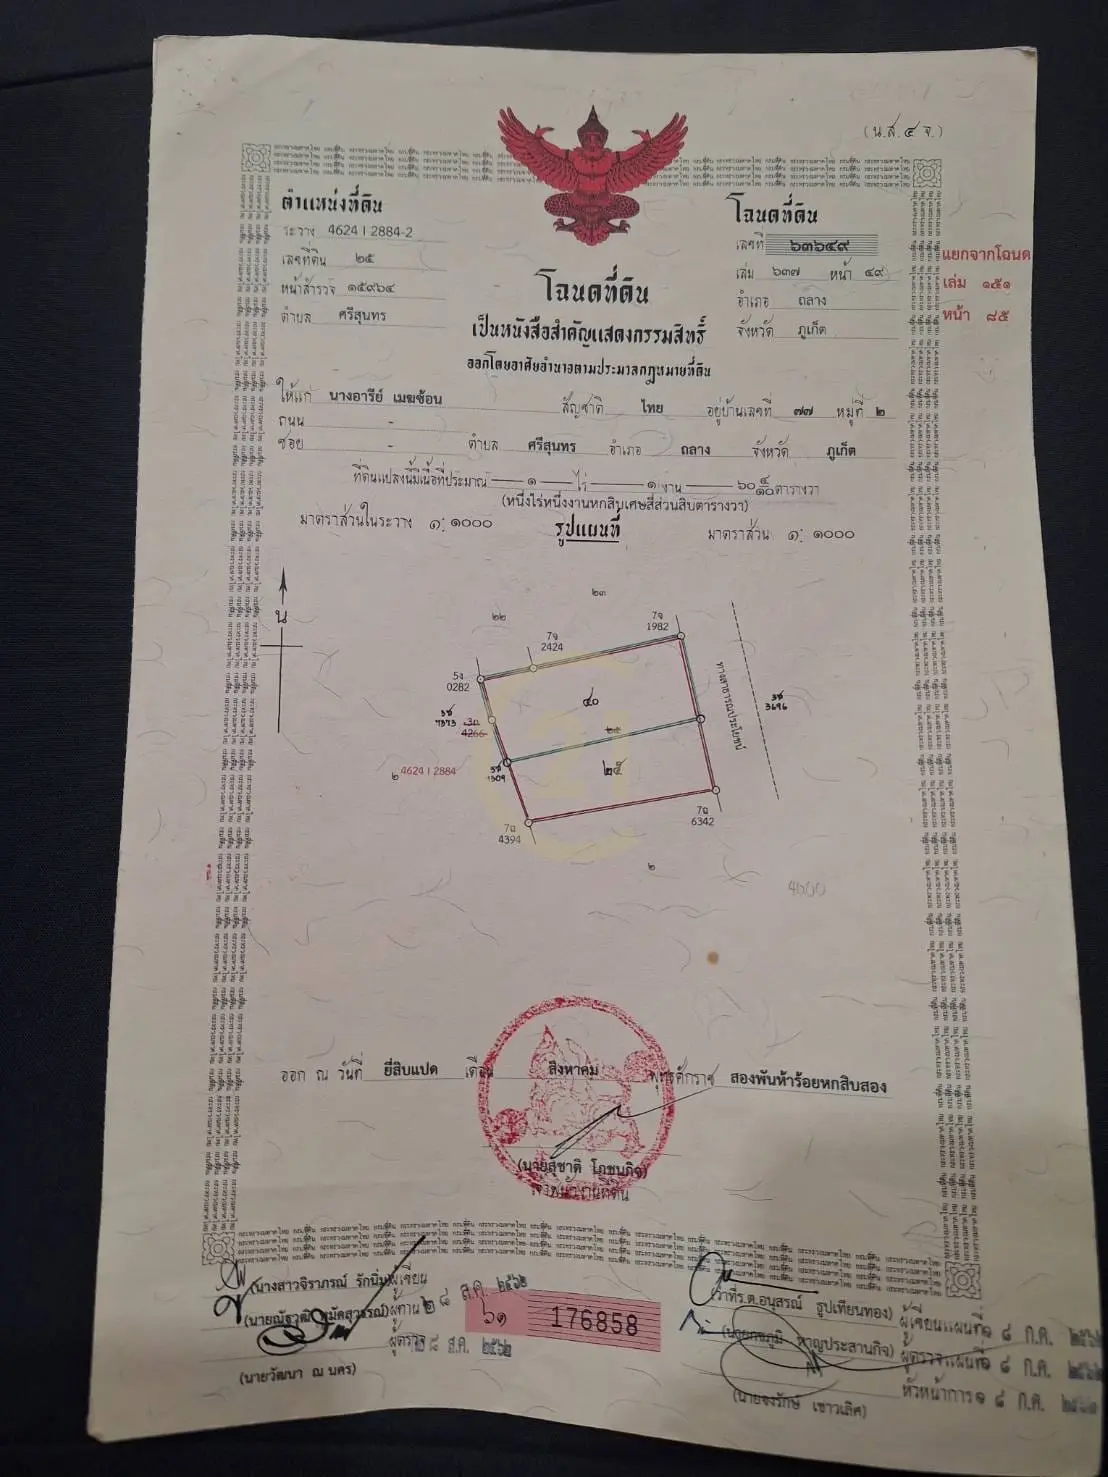 (น.ส.๔ จ.)
ตำแหน่งที่ดิน
ระวาง 4624 I 2884-2
เลขที่ดิน ๒๕
หน้าสำรวจ ๑๕๙๖๔
ตำบล ศรีสุนทร
โฉนดที่ดิน
เลขที่ ๖๓๖๔๙
เล่ม ๖๓๗ หน้า ๔๙
อำเภอ ถลาง
จังหวัด ภูเก็ต
แยกจากโฉนด
เล่ม ๑๕๑
หน้า ๘๕
โฉนดที่ดิน
เป็นหนังสือสำคัญแสดงกรรมสิทธิ์
ออกโดยอาศัยอำนาจตามประมวลกฎหมายที่ดิน
ให้แก่ นางอารีย์ เมฆซ้อน สัญชาติ ไทย อยู่บ้านเลขที่ ๗๗ หมู่ที่ ๒
ถนน -
ซอย - ตำบล ศรีสุนทร อำเภอ ถลาง จังหวัด ภูเก็ต
ที่ดินแปลงนี้มีเนื้อที่ประมาณ ๑ ไร่ ๑ งาน ๖๐ ๔/๑๐ ตารางวา
(หนึ่งไร่หนึ่งงานหกสิบเศษสี่ส่วนสิบตารางวา)
มาตราส่วนในระวาง ๑:๑๐๐๐ รูปแผนที่ มาตราส่วน ๑:๑๐๐๐
น
๒๓
๒๒
7จ
1982
7จ
2424
5ง
0282
๔๐
ทางสาธารณประโยชน์
3696
4266
๒๕
4624 I 2884
๒
1309
๒๕
7ฌ
6342
7ฌ
4394
๒
4600
ออก ณ วันที่ ยี่สิบแปด เดือน สิงหาคม พุทธศักราช สองพันห้าร้อยหกสิบสอง
(นายสุชาติ โภชนกิจ)
เจ้าพนักงานที่ดิน
(นางสาวจิราภรณ์ รักนิ่ม) ผู้เขียน
ผู้ทาน ๒๘ ส.ค. ๒๕๖๒
ผู้ตรวจ ๒๘ ส.ค. ๒๕๖๒
(นายวัฒนา ณ นคร)
๖๑ 176858
(ว่าที่ร.ต.อนุสรณ์ ธูปเทียนทอง) ผู้เขียนแผนที่ ๑๘ ก.ค. ๒๕๖๒
หาญประสานกิจ) ผู้ตรวจแผนที่ ๑๘ ก.ค. ๒๕๖๒
หัวหน้าการ ๑๘ ก.ค.
(นายจงรักษ์ เชาวเลิศ)